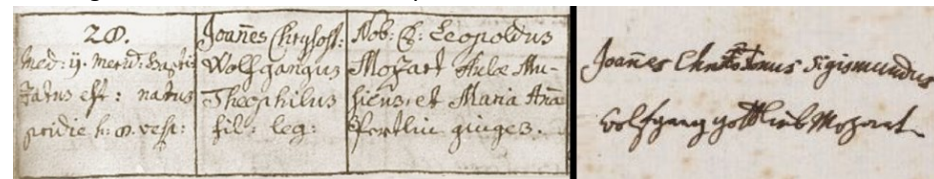 28.
med: 11. merid: baptiz
zatus est: natus
pridie h: 8. vesp:
Joan̄es Chrysost:
Wolfgangus
Theophilus
fil: leg:
Nob: D: Leopoldus
Mozart Aulæ Mu-
sicus, et Maria Ana
Pertlin giuges.
Joan̄es Sigismundus
Wolfgang Gottlieb Mozart